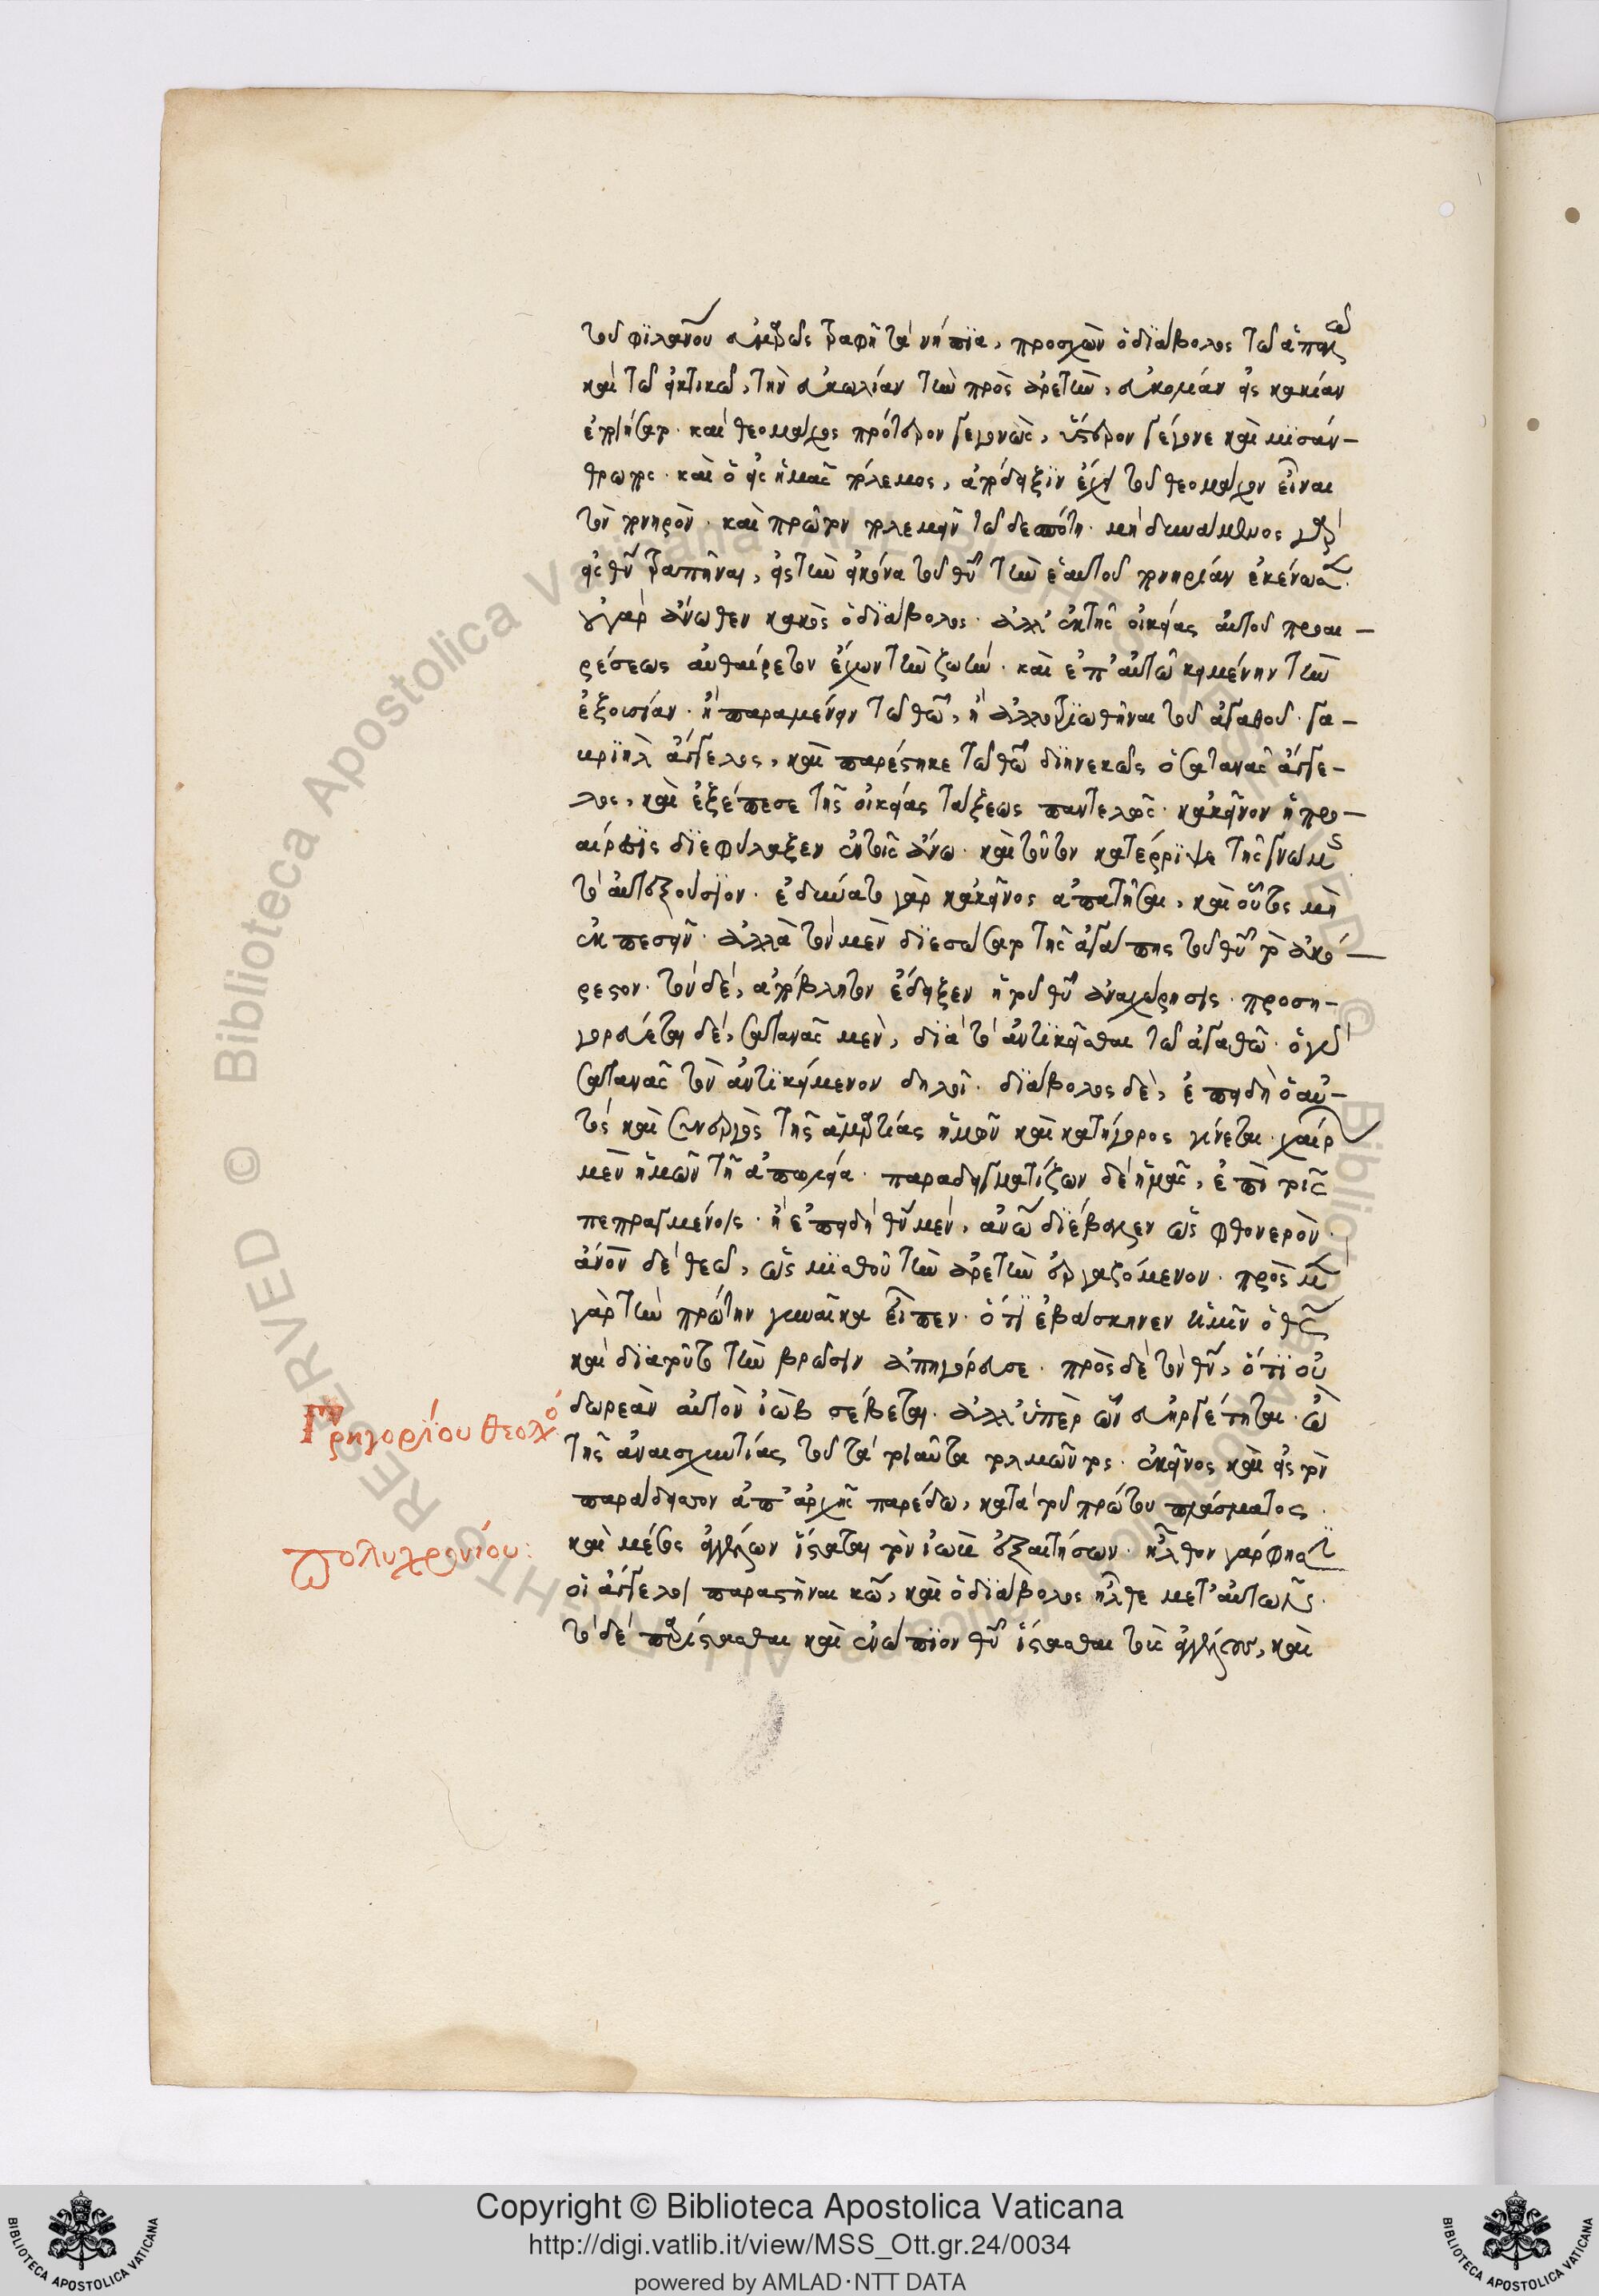 τοῦ φϊλαν̅ου εὐχερῶς τραφῆ τὰ νήπϊα, προσχὼν ὁ δϊάβολος τῶ ἁπαλῶ
καὶ τῶ εἰκτικῶ, τὴν εὐκολίαν τὴν πρὸς ἀρετὴν, εὐκολίαν εἰς κακίαν
ἐποίησεν. καὶ θεομάχος πρότερον γεγονὼς, ὕστερον γέγονε καὶ μϊσάν-
θρωπος. καὶ ὁ εἰς ἡμᾶς πόλεμος, ἀπόδειξϊν ἔχει τοῦ θεομάχον εἶναι
τὸν πονηρόν. καὶ πρῶτον πολεμεῖν τῶ δεσπότη. μὴ δυνάμενος γὰρ
εἰς θν̅ τραπῆναι, εἰς τὴν εἰκόνα τοῦ θυ̅ τὴν ἑαυτοῦ πονηρίαν ἐκένωσεν.
γὰρ ἄνωθεν κακὸς ὁ δϊάβολος. ἀλλ' ἐκ τῆς οἰκείας αὐτοῦ προαι-
ρέσεως αὐθαίρετον ἔχων τὴν ζωὴν. καὶ ἐπ' αὐτῶ κειμένην τὴν
ἐξουσίαν. ἢ παραμένειν τῶ θω̅, ἢ ἀλλοτρϊωθῆναι τοῦ ἀγαθοῦ. γα-
βρϊὴλ ἄγγελος, καὶ παρέστηκε τῶ θω̅ δϊηνεκῶς ὁ σατανᾶς ἄγγε-
λος, καὶ ἐξέπεσε τῆς οἰκείας τάξεως παντελῶς. κἀκεῖνον ἡ προ-
αίρεσις δϊεφύλαξεν ἐν τοῖς ἄνω. καὶ τοῦτον κατέρρϊψε τῆς γνώμης
τὸ αὐτεξούσϊον. ἐδύνατο γὰρ κἀκεῖνος ἀποστῆσαι, καὶ οὗτος μὴ
ἐκπεσεῖν. ἀλλὰ τὸν μὲν δϊέσωσεν τῆς ἀγάπης τοῦ θυ̅ τὸ ἀκό-
ρεστον. τὸν δὲ, ἀπόβλητον ἔδειξεν ἡ τοῦ θυ̅ ἀναχώρησις. προση-
γορεύεται δὲ, σατανᾶς μὲν, δϊὰ τὸ ἀντϊκεῖσθαι τῶ ἀγαθῶ. ὁ γὰρ
σατανᾶς τὸν ἀντϊκείμενον δηλοῖ. δϊάβολος δὲ, ἐπειδὴ ὁ αὐ-
τὸς καὶ συνεργὸς τῆς ἁμαρτίας ἡμῶν καὶ κατήγορος γίνεται. χαίρει
μὲν ἡμῶν τῆ ἀπωλεία. παραδειγματίζων δὲ ἡμᾶς, ἐπὶ τοῖς
πεπραγμένοις. ἢ ἐπειδὴ θν̅ μὲν, αν̅ω διέβαλεν ὡς φθονερὸν.
ἀν̅ον δὲ θεῶ, ὡς μϊσθοῦ τὴν ἀρετὴν ἐργαζόμενον. πρὸς μὲν
γὰρ τὴν πρώτην γυναῖκα εἶπεν. ὅτϊ ἐβάσκηνεν ὑμῖν ὁ θς̅
καὶ δϊὰ τοῦτο τὴν βρῶσιν ἀπηγόρευσε. πρὸς δὲ τὸν θν̅, ὅτϊ οὐ
Γρηγορϊου θεολο
δωρεὰν αὐτὸν ἰὼβ σέβεται. ἀλλ' ὑπὲρ ὧν εὐηργέτηται. ὢ
τῆς ἀναισχυντίας τοῦ τὰ τοιαῦτα τολμῶντος. ἐκεῖνος καὶ εἰς τὸν
παράδεισον ἀπ' ἀρχῆς παρέδω, κατὰ τοῦ πρώτου πλάσματος.
πολυχρονίου:
καὶ μέσος ἀγγέλων ἵσταται τὸν ἰὼβ ἐξαιτήσων. ἦλθον γὰρ φησὶν
οἱ ἄγγελοι παραστῆναι κω̅, καὶ ὁ δϊάβολος ἦλθε μετ' αὐτῶν.
τὸ δὲ περιΐστασθαι καὶ ἐνώπϊον θυ̅ ἵστασθαι τοὺς ἀγγέλους, καὶ
Copyright © Biblioteca Apostolica Vaticana
http://digi.vatlib.it/view/MSS_Ott.gr.24/0034
powered by AMLAD·NTT DATA